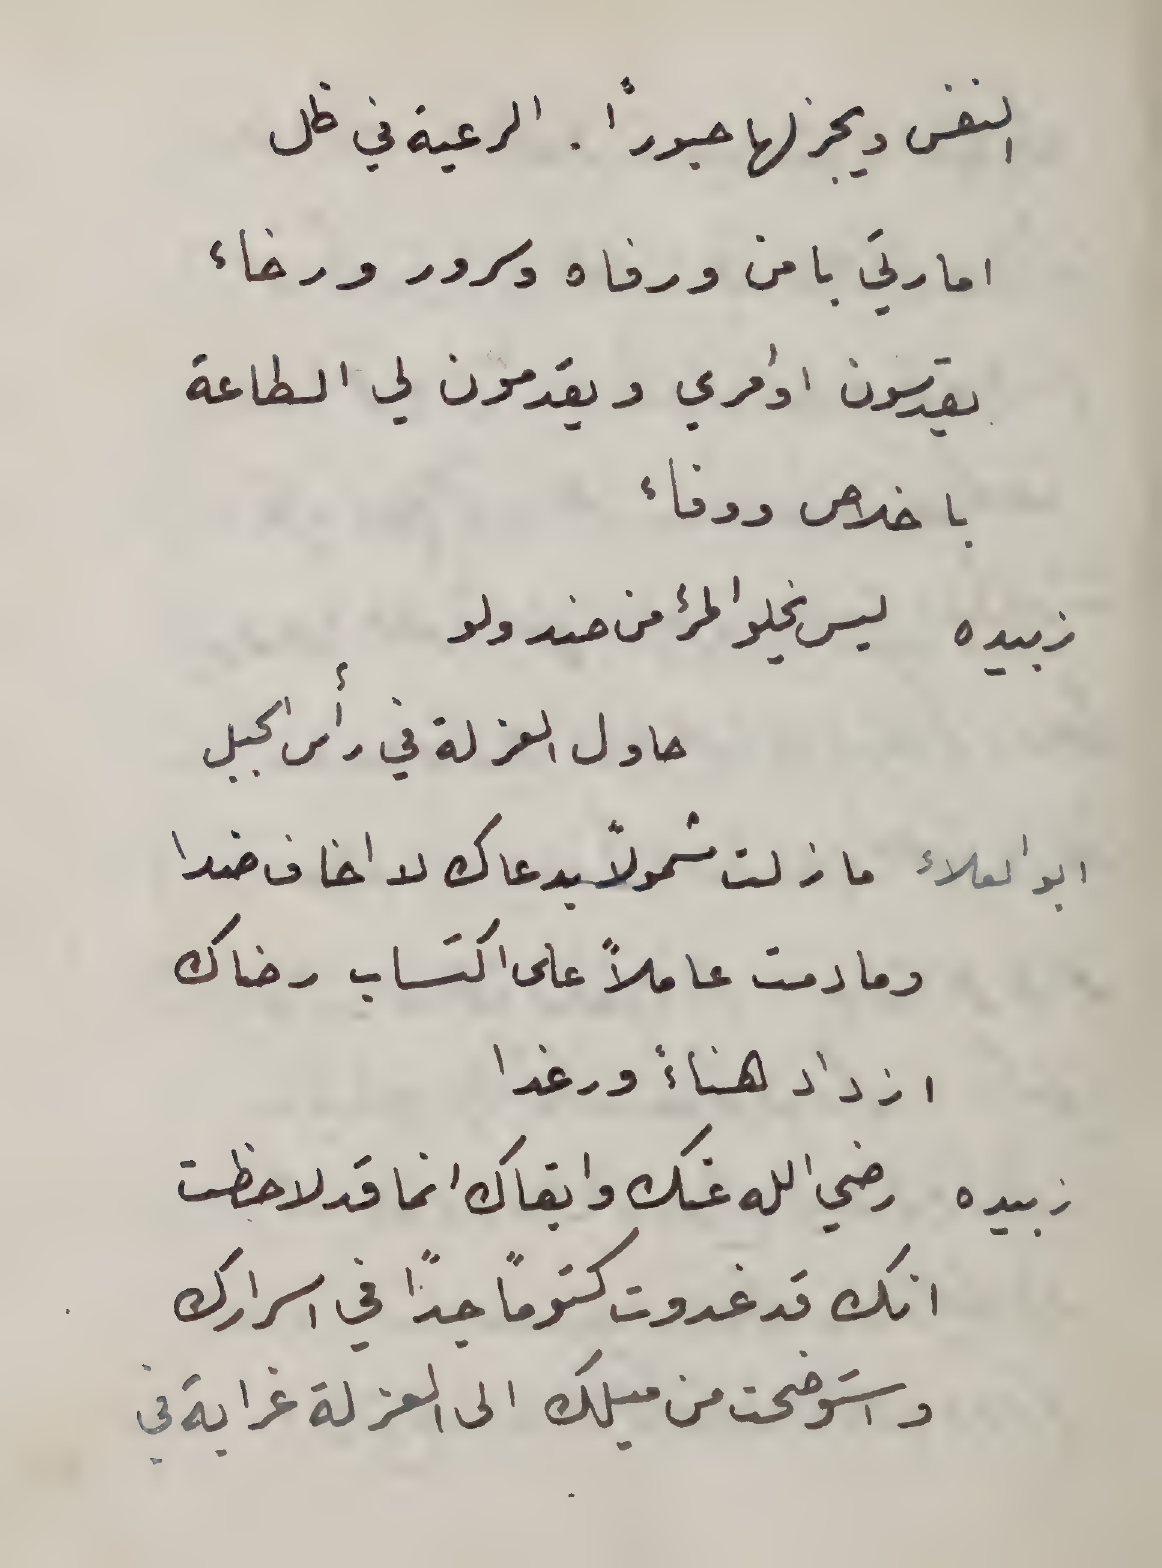 النفس ويجزلها حبورًا . الرعية في ظل
امارتي بامن ورفاه وسرور ورخاء
يقدسون اوامري ويقدمون لي الطاعة
باخلاص ووفاء
زبيده ليس يخلو المرء من ضد ولو
حاول العزلة في رأس الجبل
ابو العلاء ما زلت مشمولاً بدعاك لا اخاف ضدا
وما دمت عاملاً على اكتساب رضاك
ازداد هناءً ورغدا
زبيده رضي الله عنك وابقاك انما قد لاحظت
انك قد غدوت كتومًا جدًا في اسرارك
واستوضحت من ميلك الى العزلة غرابة في